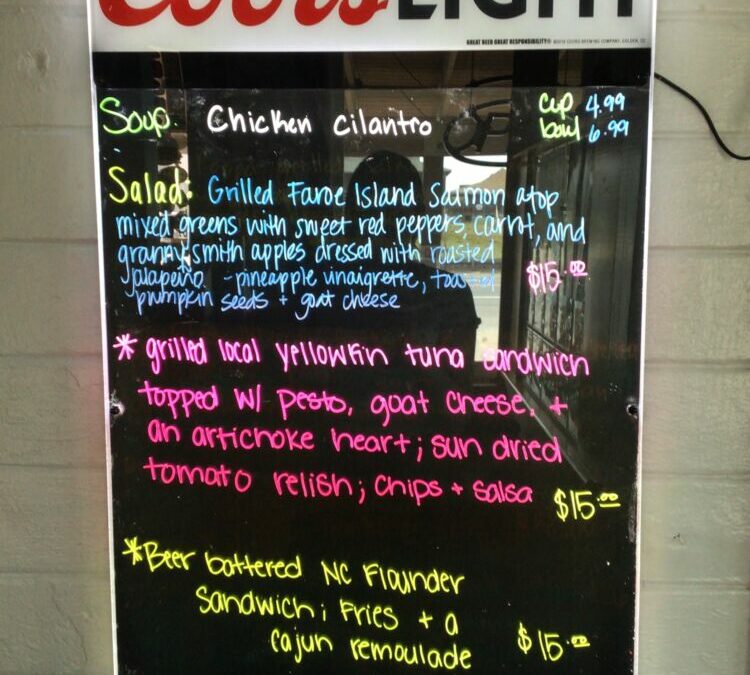 Coors LIGHT
GREAT BEER GREAT RESPONSIBILITY®
Soup. Chicken cilantro cup 4.99
bowl 6.99
Salad: Grilled Faroe Island Salmon atop
mixed greens with sweet red peppers, carrot, and
granny smith apples dressed with roasted
jalapeño - pineapple vinaigrette, toasted $15.00
pumpkin seeds + goat cheese
* grilled local yellowfin tuna sandwich
topped w/ pesto, goat cheese, +
an artichoke heart; sun dried
tomato relish; chips + salsa $15.00
*Beer battered NC Flounder
sandwich; Fries + a
cajun remoulade $15.00